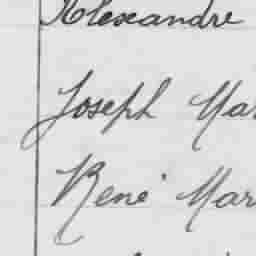 Alexandre
Joseph Mar
René Mar